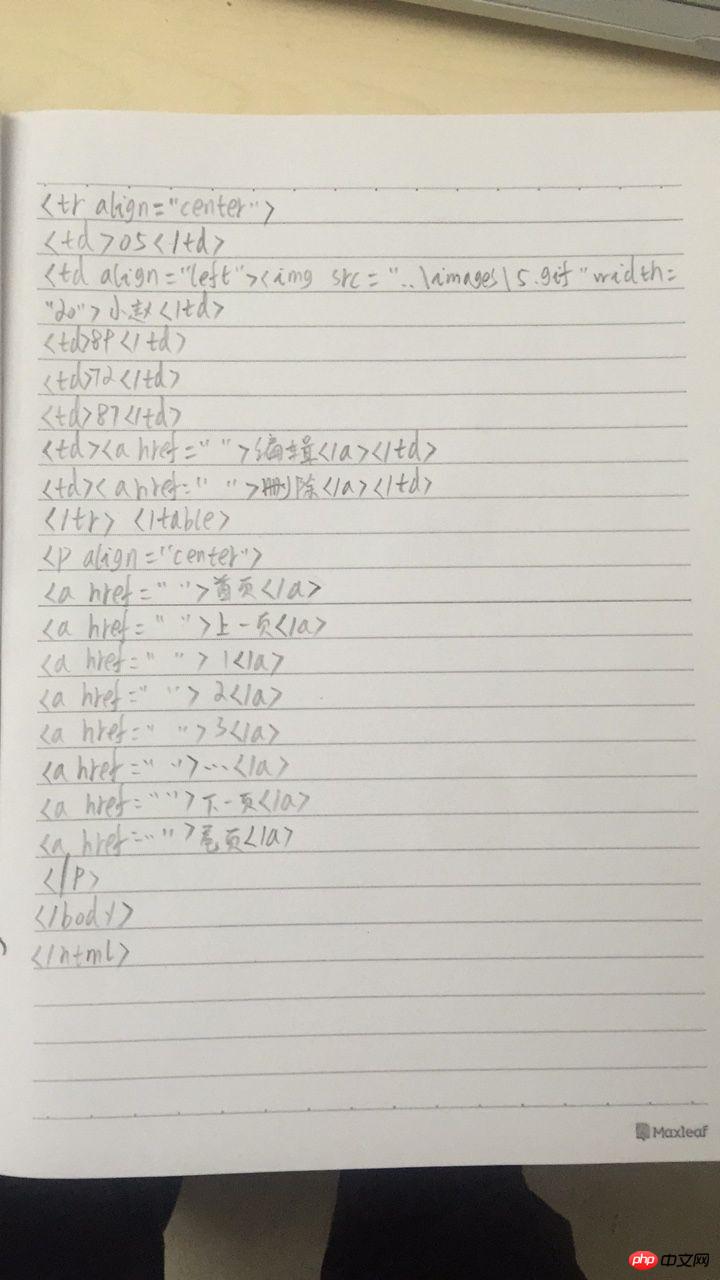 <tr align="center">
<td>05</td>
<td align="left"><img src="..\images\5.gif" width=
"20">小赵</td>
<td>89</td>
<td>72</td>
<td>87</td>
<td><a href=" ">编辑</a></td>
<td><a href=" ">删除</a></td>
</tr> </table>
<p align="center">
<a href=" ">首页</a>
<a href=" ">上一页</a>
<a href=" ">1</a>
<a href=" ">2</a>
<a href=" ">3</a>
<a href=" ">...</a>
<a href="">下一页</a>
<a href="">尾页</a>
</p>
</body>
</html>
Maxleaf
php 中文网